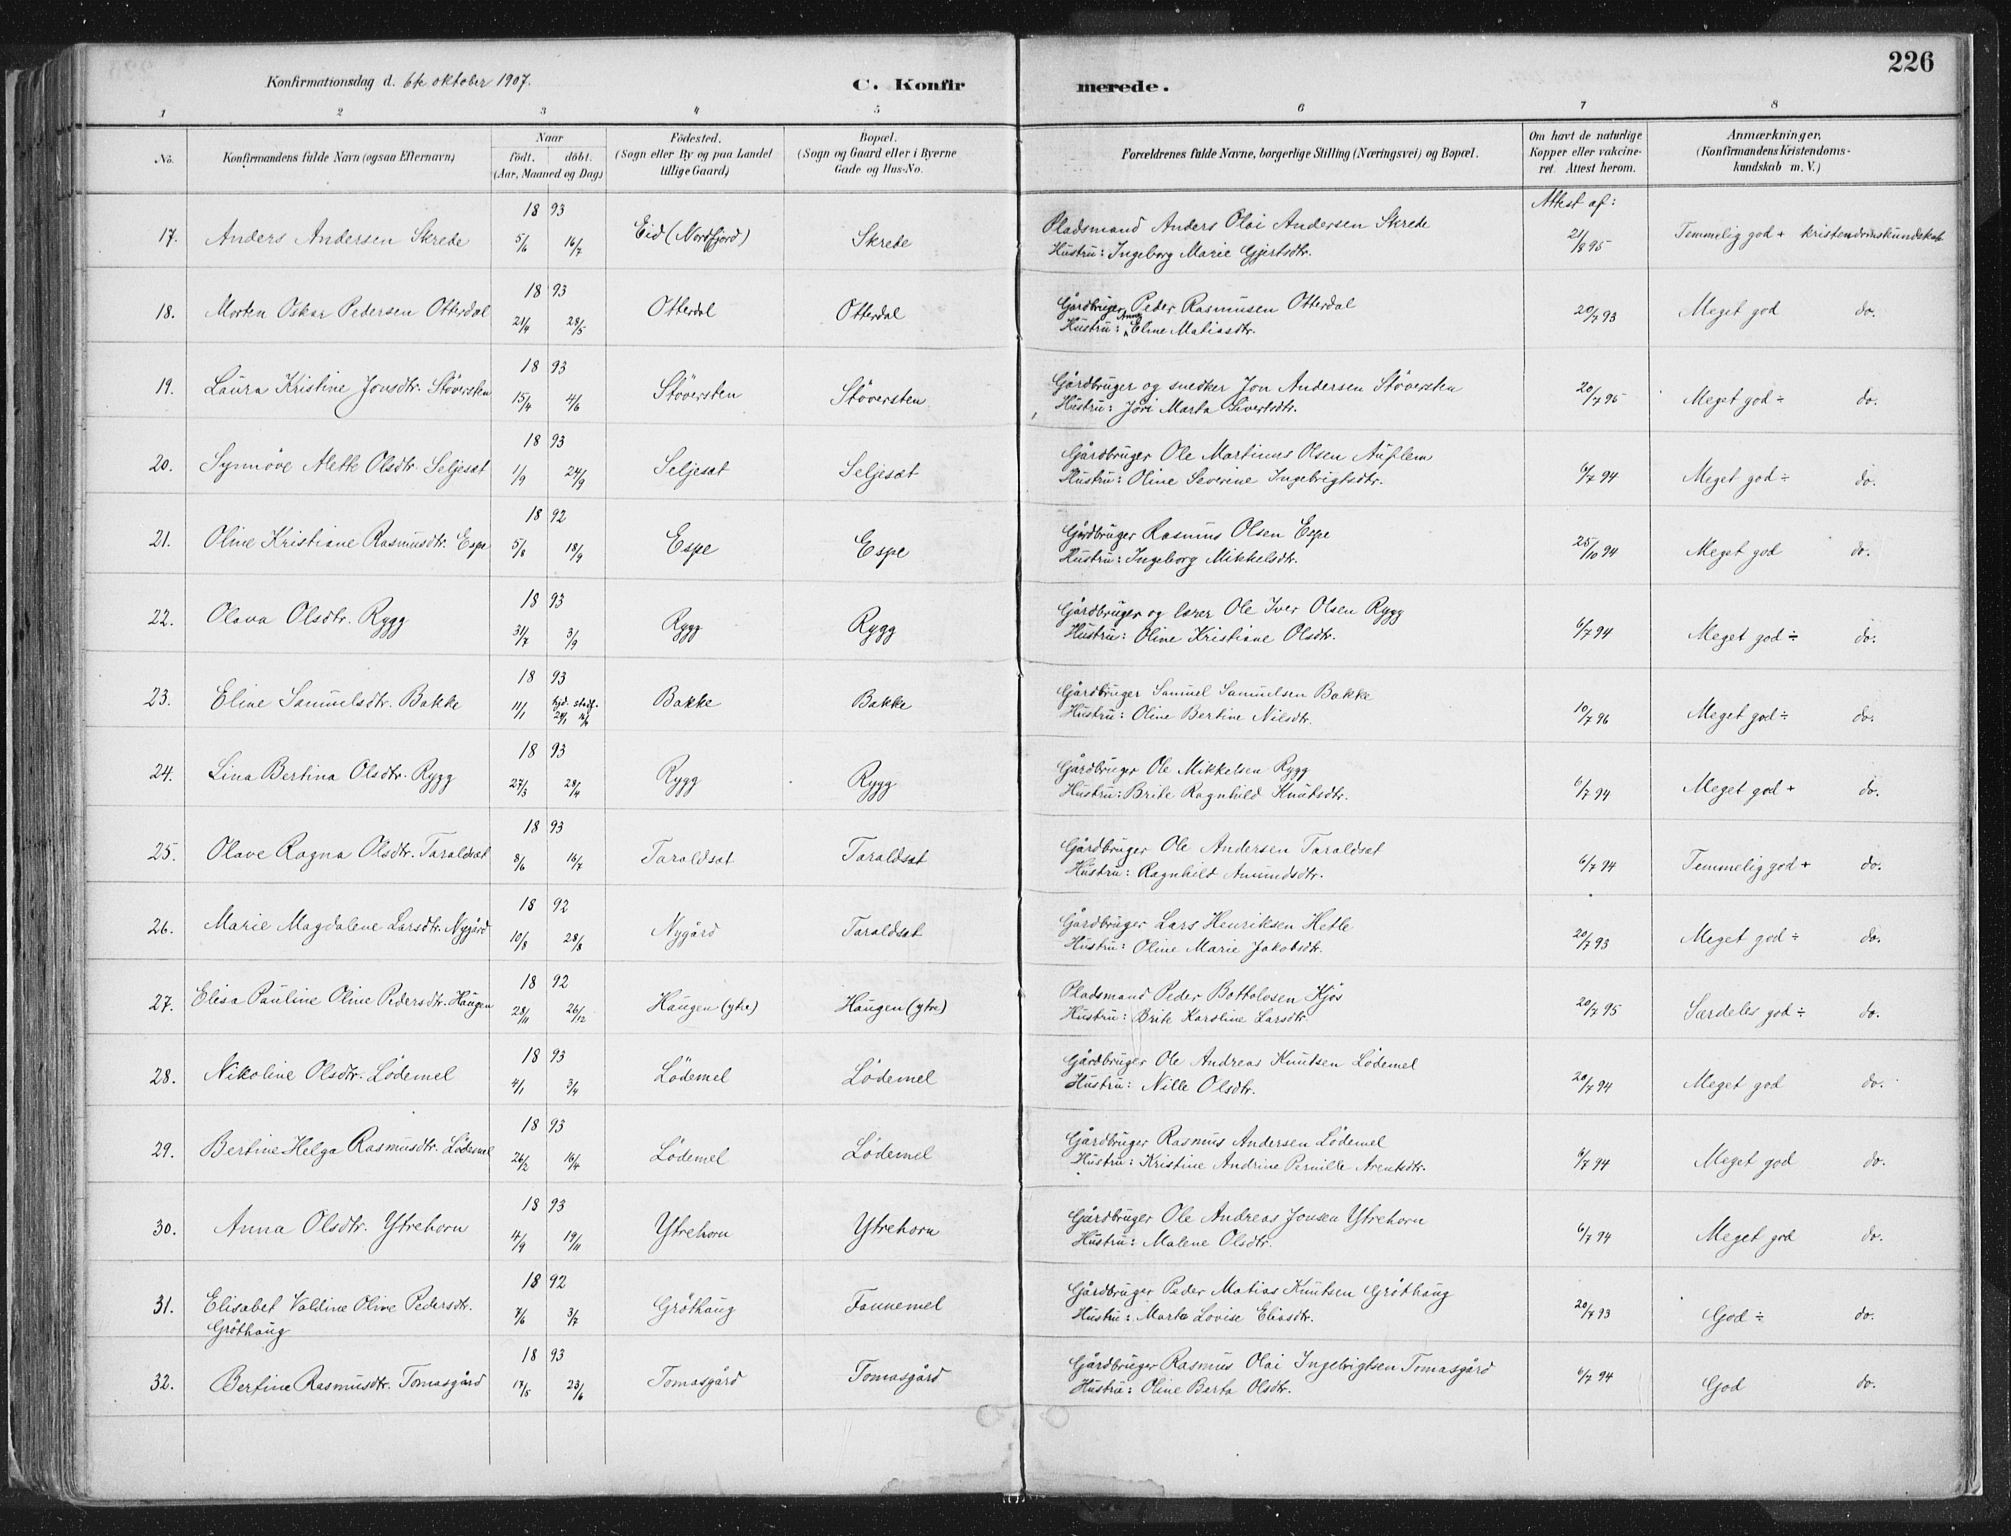 226
Konfirmationsdag d. 6te oktober 1907.
C. Konfirmerede.
1 2 3 4 5 6 7 8
No. Konfirmandens fulde Navn (ogsaa Efternavn) Naar födt. döbt. (Aar, Maaned og Dag) Födested. (Sogn eller By og paa Landet tillige Gaard) Bopæl. (Sogn og Gaard eller i Byerne Gade og Hus-No. Forældrenes fulde Navne, borgerlige Stilling (Næringsvei) og Bopæl. Om havt de naturlige Kopper eller vakcineret. Attest herom. Anmærkninger. (Konfirmandens Kristendomskundskab m. V.)
Attest af:
18 93
17. Anders Andersen Skrede 5/6 16/7 Eid (Nordfjord) Skrede Pladsmand Anders Olai Andersen Skrede 21/8 95 Temmelig god + kristendomskundskab
Hustru: Ingeborg Marie Gjertsdtr.
18 93
18. Morten Oskar Pedersen Otterdal 21/4 28/5 Otterdal Otterdal Gårdbruger Peder Rasmusen Otterdal 20/7 93 Meget god do.
Hustru: Anne Eline Matiasdtr.
18 93
19. Laura Kristine Jonsdtr. Störersten 15/4 4/6 Störersten Störersten Gårdbruger og snedker Jon Andersen Störersten 20/7 95 Meget god ÷ do.
Hustru: Jöri Marta Sivertsdtr.
18 93
20. Synnöve Alette Olsdtr. Seljesæt 1/9 24/9 Seljesæt Seljesæt Gårdbruger Ole Martinus Olsen Auflem 6/7 94 Meget god ÷ do.
Hustru: Oline Severine Ingebrigtsdtr.
18 92
21. Oline Kristiane Rasmusdtr. Espe 5/8 18/9 Espe Espe Gårdbruger Rasmus Olsen Espe 25/10 94 Meget god do.
Hustru: Ingeborg Mikkelsdtr.
18 93
22. Olava Olsdtr. Rygg 31/7 3/9 Rygg Rygg Gårdbruger og lærer Ole Iver Olsen Rygg 6/7 94 Meget god ÷ do.
Hustru: Oline Kristiane Olsdtr.
18 93
23. Eline Samuelsdtr. Bakke 11/1 hjd. stadf. Bakke Bakke Gårdbruger Samuel Samuelsen Bakke 10/7 96 Meget god ÷ do.
Hustru: Oline Bertine Nilsdtr.
18 93
24. Lina Bertina Olsdtr. Rygg 27/3 28/4 Rygg Rygg Gårdbruger Ole Mikkelsen Rygg 6/7 94 Meget god + do.
Hustru: Brite Ragnhild Knutsdtr.
18 93
25. Olave Ragna Olsdtr. Taraldsæt 8/6 16/7 Taraldsæt Taraldsæt Gårdbruger Ole Andersen Taraldsæt 6/7 94 Temmelig god + do.
Hustru: Ragnhild Amundsdtr.
18 92
26. Marie Magdalene Larsdtr. Nygård 10/8 28/8 Nygård Taraldsæt Gårdbruger Lars Henriksen Hetle 20/7 93 Meget god ÷ do.
Hustru: Oline Marie Jakobsdtr.
18 92
27. Elisa Pauline Oline Pedersdtr. Haugen 28/11 26/12 Haugen (ytre) Haugen (ytre) Pladsmand Peder Bottolvsen Kjös 20/7 95 Særdeles god ÷ do.
Hustru: Brite Karoline Larsdtr.
18 93
28. Nikoline Olsdtr. Lödemel 4/1 3/4 Lödemel Lödemel Gårdbruger Ole Andreas Knutsen Lödemel 20/7 94 Meget god do.
Hustru: Nille Olsdtr.
18 93
29. Bertine Helga Rasmusdtr. Lödemel 26/2 16/4 Lödemel Lödemel Gårdbruger Rasmus Andersen Lödemel 6/7 94 Meget god do.
Hustru: Kristine Andrine Pernille Arentsdtr.
18 93
30. Anna Olsdtr. Ytrehorn 4/9 19/11 Ytrehorn Ytrehorn Gårdbruger Ole Andreas Jonsen Ytrehorn 6/7 94 Meget god do.
Hustru: Malene Olsdtr.
18 92
31. Elisabet Valdine Olive Pedersdtr. 7/6 3/7 Gröthaug Fannemel Gårdbruger Peder Matias Knutsen Gröthaug 20/7 93 God ÷ do.
Gröthaug Hustru: Marte Lovise Eliasdtr.
18 93
32. Bertine Rasmusdtr. Tomasgård 17/5 23/6 Tomasgård Tomasgård Gårdbruger Rasmus Olai Ingebrigtsen Tomasgård 6/7 94 God do.
Hustru: Oline Berta Olsdtr.